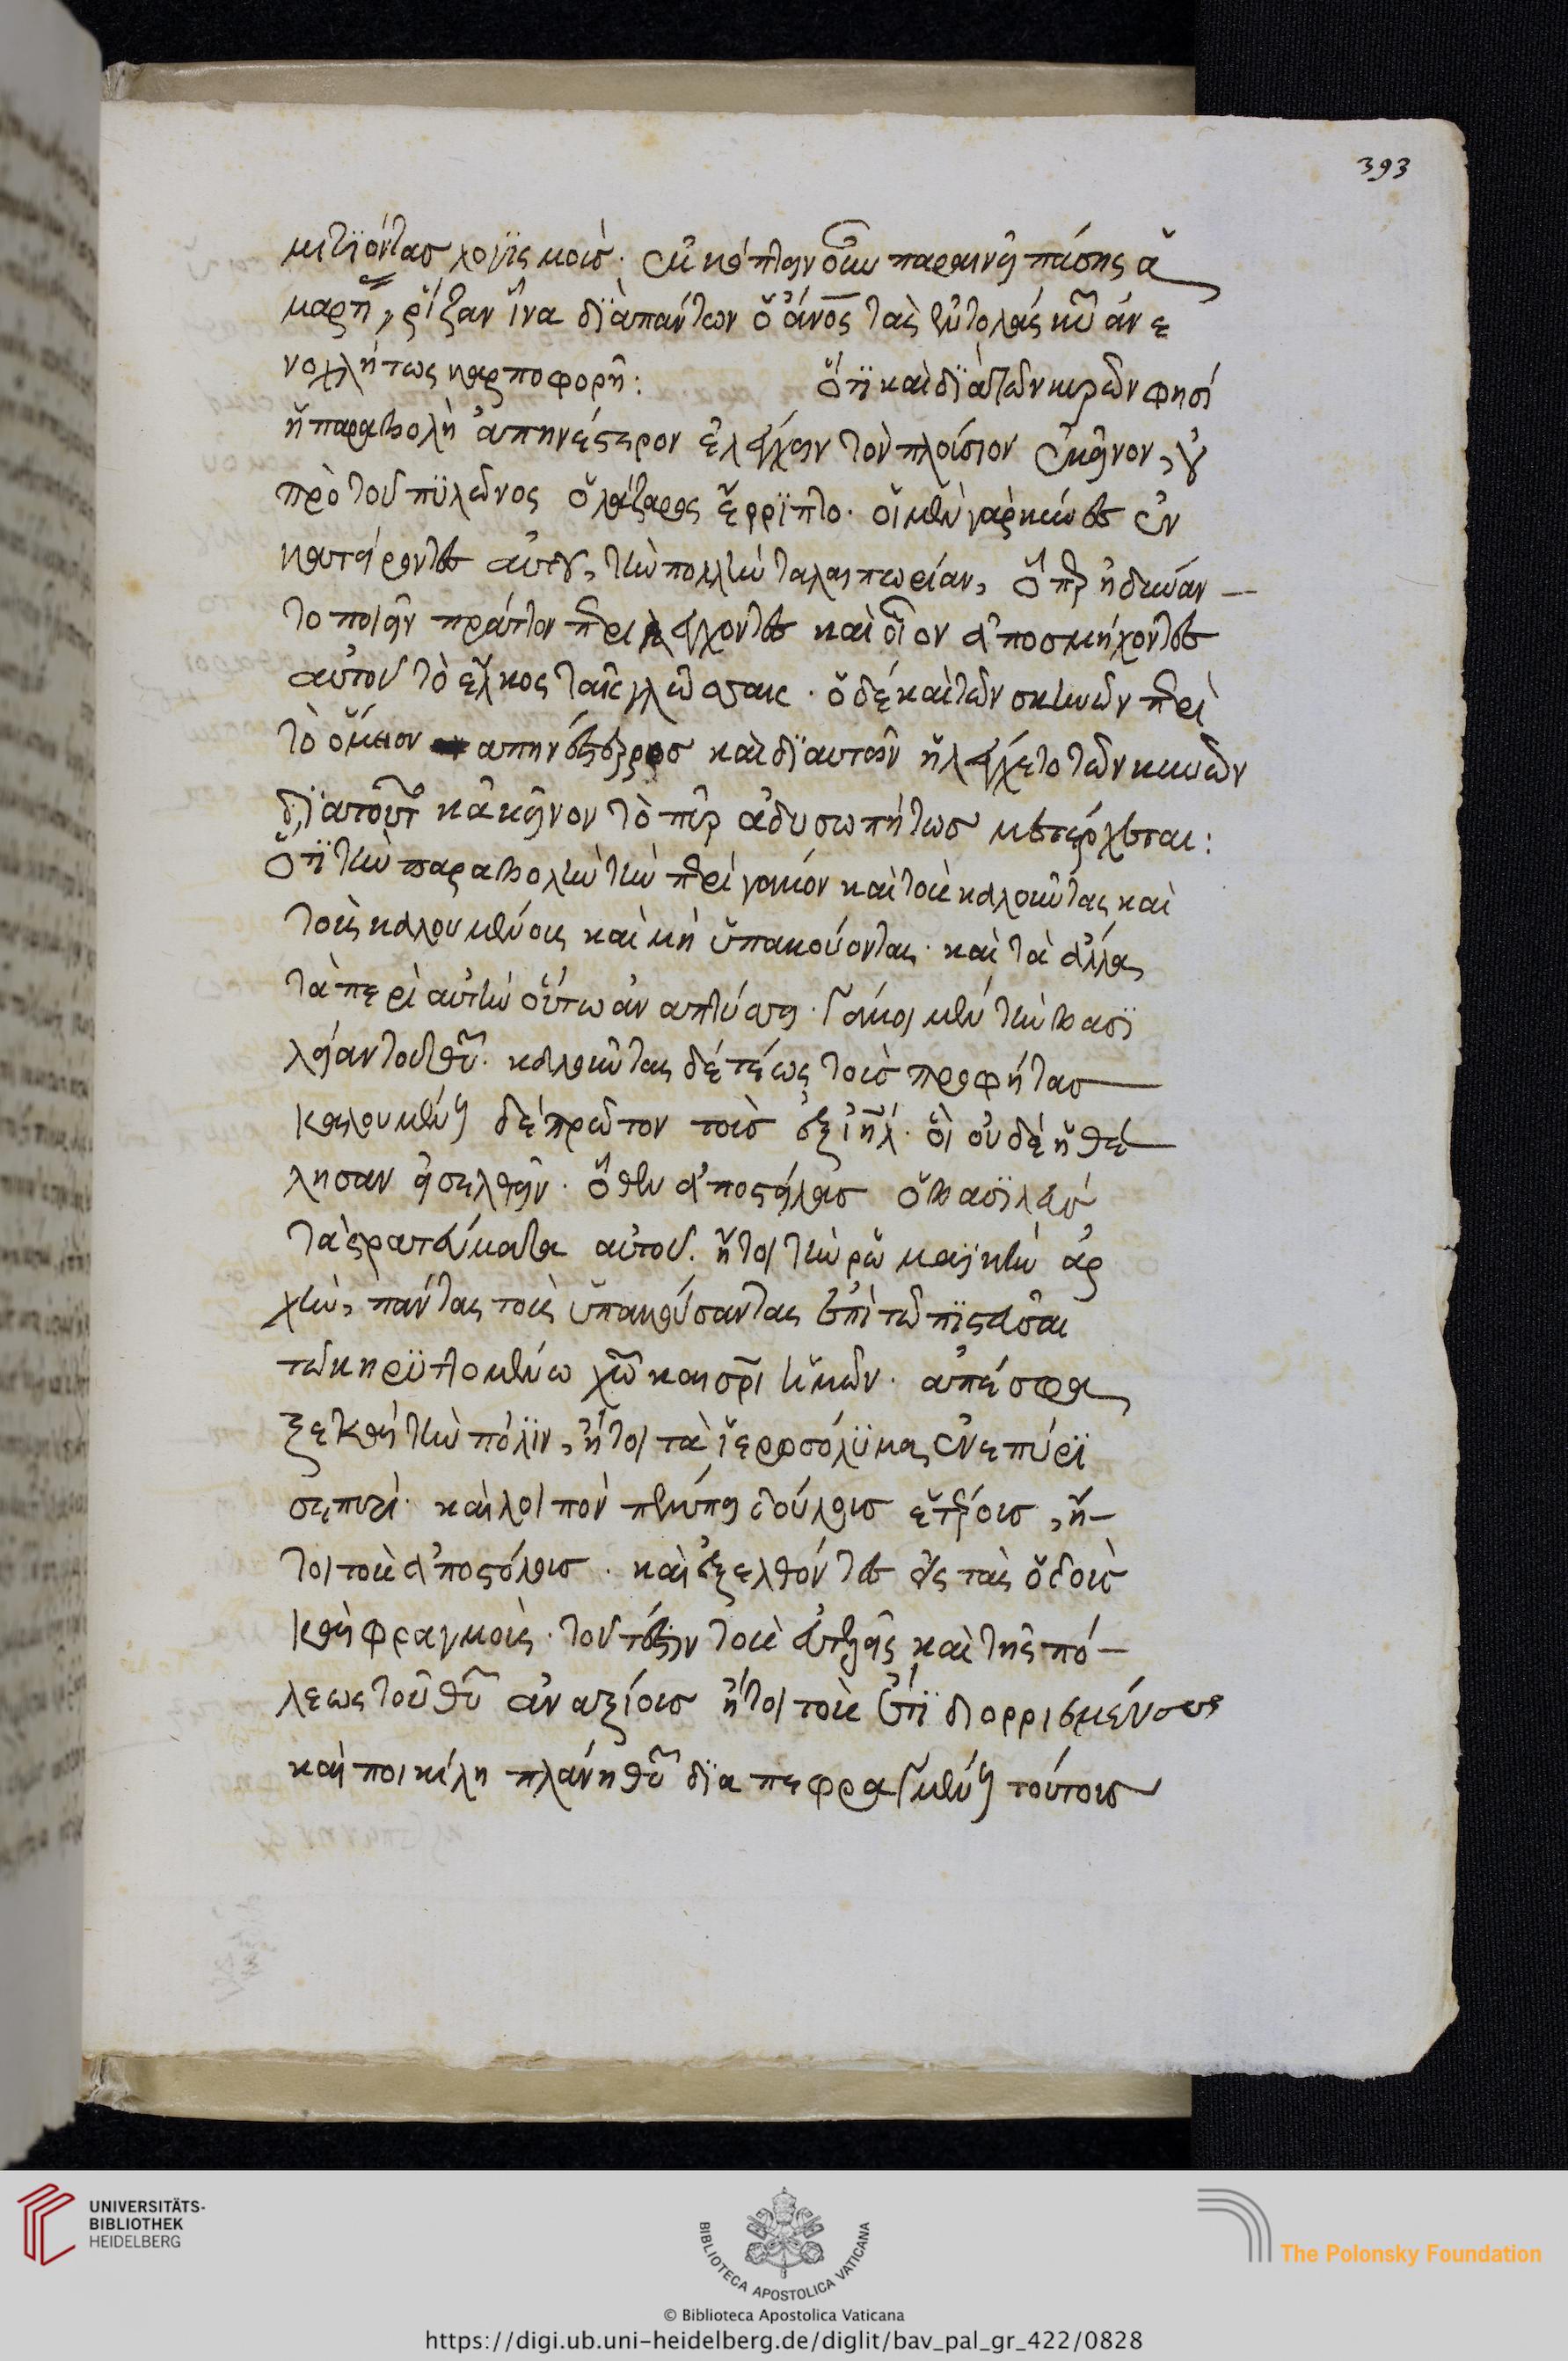 393
μετιόντας λογισμούς. ἐκκόπτειν οὖν παραινεῖ πάσης ἁ
μαρτί ῥίζαν ἵνα διὰ πάντων ὁ ἄνος τὰς ἐντολάς κυ ἀνε
νοχλήτως καρποφορῆ: Ὅτι καὶ διὰ τῶν κυρῶν φησί
ἡ παραβολὴ ἀπηνέστερον ἐλέγχειν τὸν πλούσιον ἐκεῖνον, οὗ
πρὸ τοῦ πυλῶνος ὁ λάζαρος ἔρριπτο. οἱ μὲν γὰρ κύνες ἐν
κατῄροντες αὐτοῦ, τὴν πολλὴν ταλαιπωρίαν, ὅπερ ἠδύναν
το ποιεῖν πράττον περιλείχοντες καὶ οἷον ἀποσμήχοντες
αὐτοῦ τὸ ἕλκος ταῖς γλώσσαις. ὁ δέ καὶ τῶν σκυνῶν περὶ
τὸ ὅμοιον ἀπηνέστερος καὶ δι αυτῶν ἠλέγχετο τῶν κυνῶν
διατοῦτο κἀκεῖνον τὸ πῦρ ἀδυσωπήτως μετέρχεται:
Ὅτι τὴν παραβολὴν τὴν περί γάμόν καὶ τοὺς καλοῦντας καὶ
τοὺς καλουμένους καὶ μὴ ὑπακούοντας. καὶ τὰ ἄλλα
τὰ περὶ αὐτὴν οὕτω ἀναπτύσσει. Γάμος μὲν τὴν βασι
λείαν τοῦ θυ. καλοῦντας δέ τέως τοὺς προφήτας
καλουμένους δέ πρῶτον τοὺς ἐξ ιηλ. οἳ οὐδέ ἠθέ
λησαν εἰσελθεῖν. ὅθεν ἀποστείλας ὁ βασιλεύς
τὰ στρατεύματα αὐτοῦ. ἤτοι τὴν ῥωμαϊκὴν ἀρ
χήν, πάντας τοὺς ὑπακούσαντας ἐπὶ τῶ πιστεῦσαι
τῶ κηρυττομένω χω καὶ σρι ἡμῶν. ἀπέσφα
ξε καὶ τὴν πόλιν, ἤτοι τὰ ἱεροσόλυμα, ἐνεπύρι
σεπυρί. καὶ λοιπὸν πέμπει δούλους ἑτέρους, ἤ
τοι τοὺς ἀποστόλους. καὶ ἐξελθόντες εἰς τὰς ὁδοὺς
καὶ φραγμοὺς. τουτέστιν τοὺς εὐτελεῖς καὶ τῆς πό
λεως τοῦ θυ ἀναξίους ἤτοι τοὺς ἔτι διορρισμένους
καὶ ποικίλη πλάνη θυ διαπεφραγμένους τούτοις
UNIVERSITÄTS-
BIBLIOTHEK
HEIDELBERG
BIBLIOTECA APOSTOLICA VATICANA
The Polonsky Foundation
© Biblioteca Apostolica Vaticana
https://digi.ub.uni-heidelberg.de/diglit/bav_pal_gr_422/0828